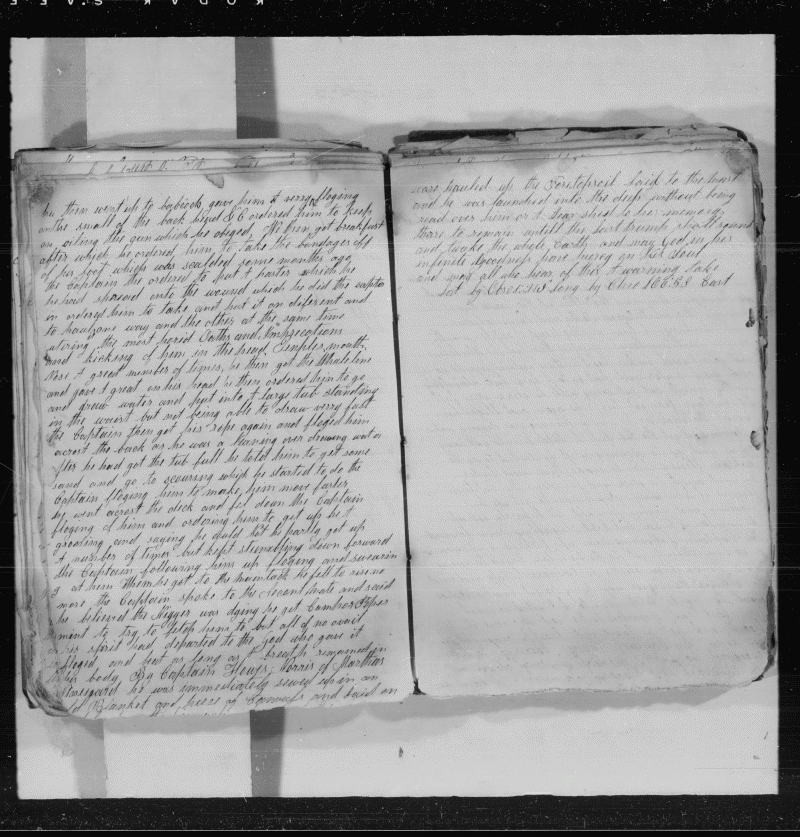 he then went up to babcock gave him a verry floging
on the small of the back &C ordered him to keep
on oiling the gun which he obeyed, We then got breakfast
after which he ordered him to take the bandages off
of his foot which was scalded some months ago
the captain the ordered to put a plaster which he
he had spread onto the wound which he did the captain
in ordered them to take and put it on diferent and
to haul one way and the other at the same time
utering the most horid Oaths and Imprecations
and kicking of him in the head, Temples, mouth,
Nose a great member of times, he then got the Whaleline
and gave a great on his head he then ordered him to go
and draw water and put into a large tub standing
in the waist but not being able to draw verry fast
the Captain then got his rope again and floged him
acrost the back as he was a leaning over drawing water
after he had got the tub full he told him to get some
sand and go to scouring which he started to do the
Captain floging him to make him move faster
he went acrost the deck and fell down the Captain
floging of him and ordering him to get up he
groaning and saying he could not he partly got up
A number of times but kept stumbling down forward
the Captain following him up floging and swearin
g at him When he got to the he fell to rise no
more the Captain spoke to the Second Mate and said
he believed the Nigger was dying he got Camphor Pepper
mint to try to fetch him to but all of no avail
his spirit had departed to the god who gave it
floged and beat as long as a breath remained in
his body By Captain Norris of Marthas
he was immediately sewed up in an
old Blanket and of Canvass and laid on
ware hauled up the Foretopsail laid to the mast
and he was launched into the deep without being
read over him or a tear shed to her memory
thare to remain untill the last trump shall sound
and awake the whole Earth and may God in his
infinite Goodness have mercy on his Soul
and may all who hear of this A warning take
Lat by Long by 168.58 East